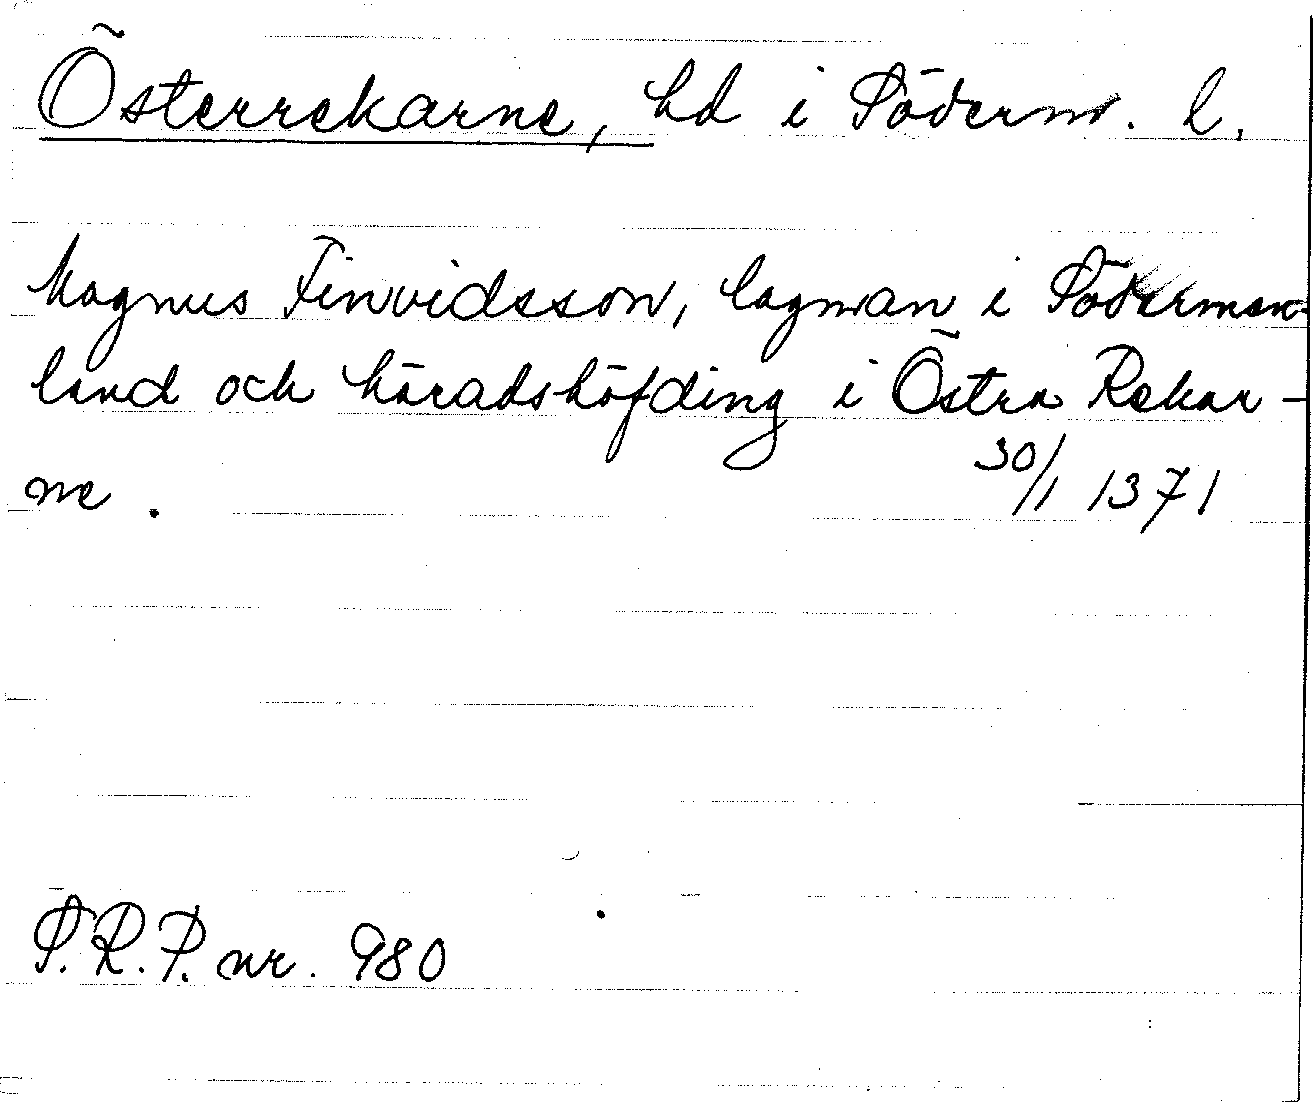 Österrekarne, hd i Söderm. l.
Magnus Finvidsson, lagman i Söderman-
land och häradshöfding i Östra Rekar-
ne. 30/1 1371
S.R.P. nr. 980